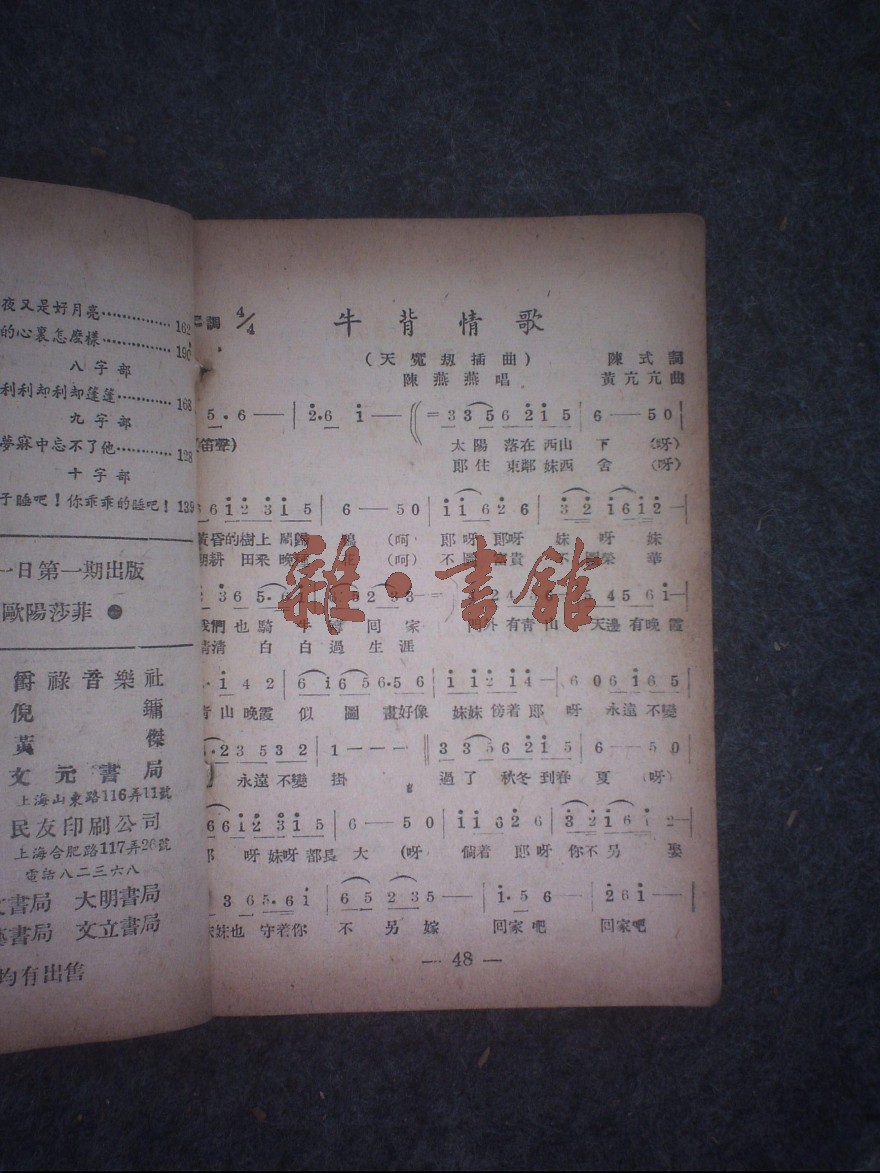 夜又是好月亮……………162
的心裏怎麽樣……………190
八字部
利利却利却蓬蓬…………168
九字部
夢寐中忘不了他…………128
十字部
于睡吧！你乖乖的睡吧！139
一日第一期出版
歐陽莎菲
爵祿音樂社
倪鏞
黃傑
文元書局
上海山東路116弄11號
民友印刷公司
上海合肥路117弄26號
電話八二三六八
書局 大明書局
書局 文立書局
均有出售
調 4/4 牛背情歌
（天寃刼插曲） 陳式詞
陳燕燕唱 黃亢亢曲
5·6 — | 2·6 i — — 3 3 5 6 2 i 5 | 6 — 5 0
（笛聲） 太陽落在西山下（呀）
郎住東鄰妹西舍（呀）
6 i 2 3 i 5 | 6 — 5 0 | i i 6 2 6 | 3 2 i 6 i 2 —
黃昏的樹上 （呵） 郎呀郎呀妹呀妹
耕田采 （呵） 不圖富貴不圖榮華
我們也騎牛 回家 門外有青山 天邊有晚霞
清清白白過生涯
i 4 2 | 6 i 6 5 6·5 6 | i i 2 i 4 — | 6 0 6 i 6 5
青山晚霞似圖畫好像妹妹傍着郎呀永遠不變
2 3 5 3 2 | 1 — — — 3 3 5 6 2 i 5 | 6 — 5 0
永遠不變掛 過了秋冬到春夏（呀）
6 6 i 2 3 i 5 | 6 — 5 0 | i i 6 2 6 | 3 2 i 6 i 2 —
郎呀妹呀都長大（呀 倘着郎呀你不另娶
3 6 5·6 i | 6 5 2 3 5 — | i·5 6 | 2 6 i —
妹妹也守着你不另嫁 回家吧 回家吧
— 48 —
雜·書館